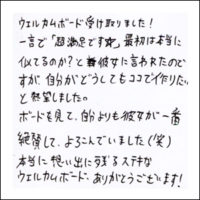 ウェルカムボード受け取りました！
一言で「超満足です☆」最初は本当に
似てるのか？と彼女に言われたので
すが、自分がどうしてもココで作りたい。
と熱望しました。
ボードを見て、自分よりも彼女が一番
絶賛して、よろこんでいました(笑)
本当に想い出に残るステキな
ウェルカムボード、ありがとうございます！